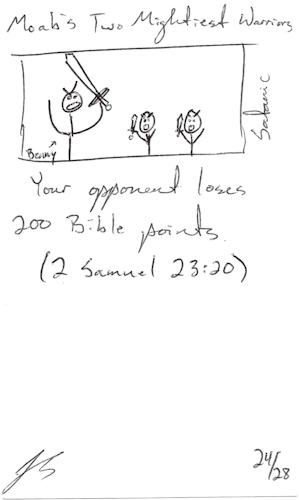 Moab's Two Mightiest Warriors
Satanic
Benny
Your opponent loses
200 Bible points.
(2 Samuel 23:20)
24/28